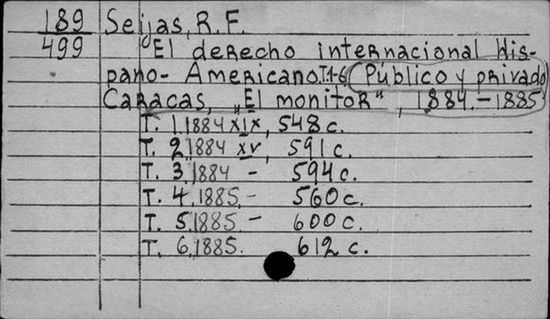 189 Seijas, R. F.
499 El derecho internacional His-
pano-Americano. T.1-6 (Público y privado)
Caracas, „El monitor“, 1884.-1885
T. 1.1884 XIX, 548 c.
T. 2.1884 XV, 591 c.
T. 3.1884 - 594 c.
T. 4.1885.- 560 c.
T. 5.1885 - 600 c.
T. 6.1885. 612 c.